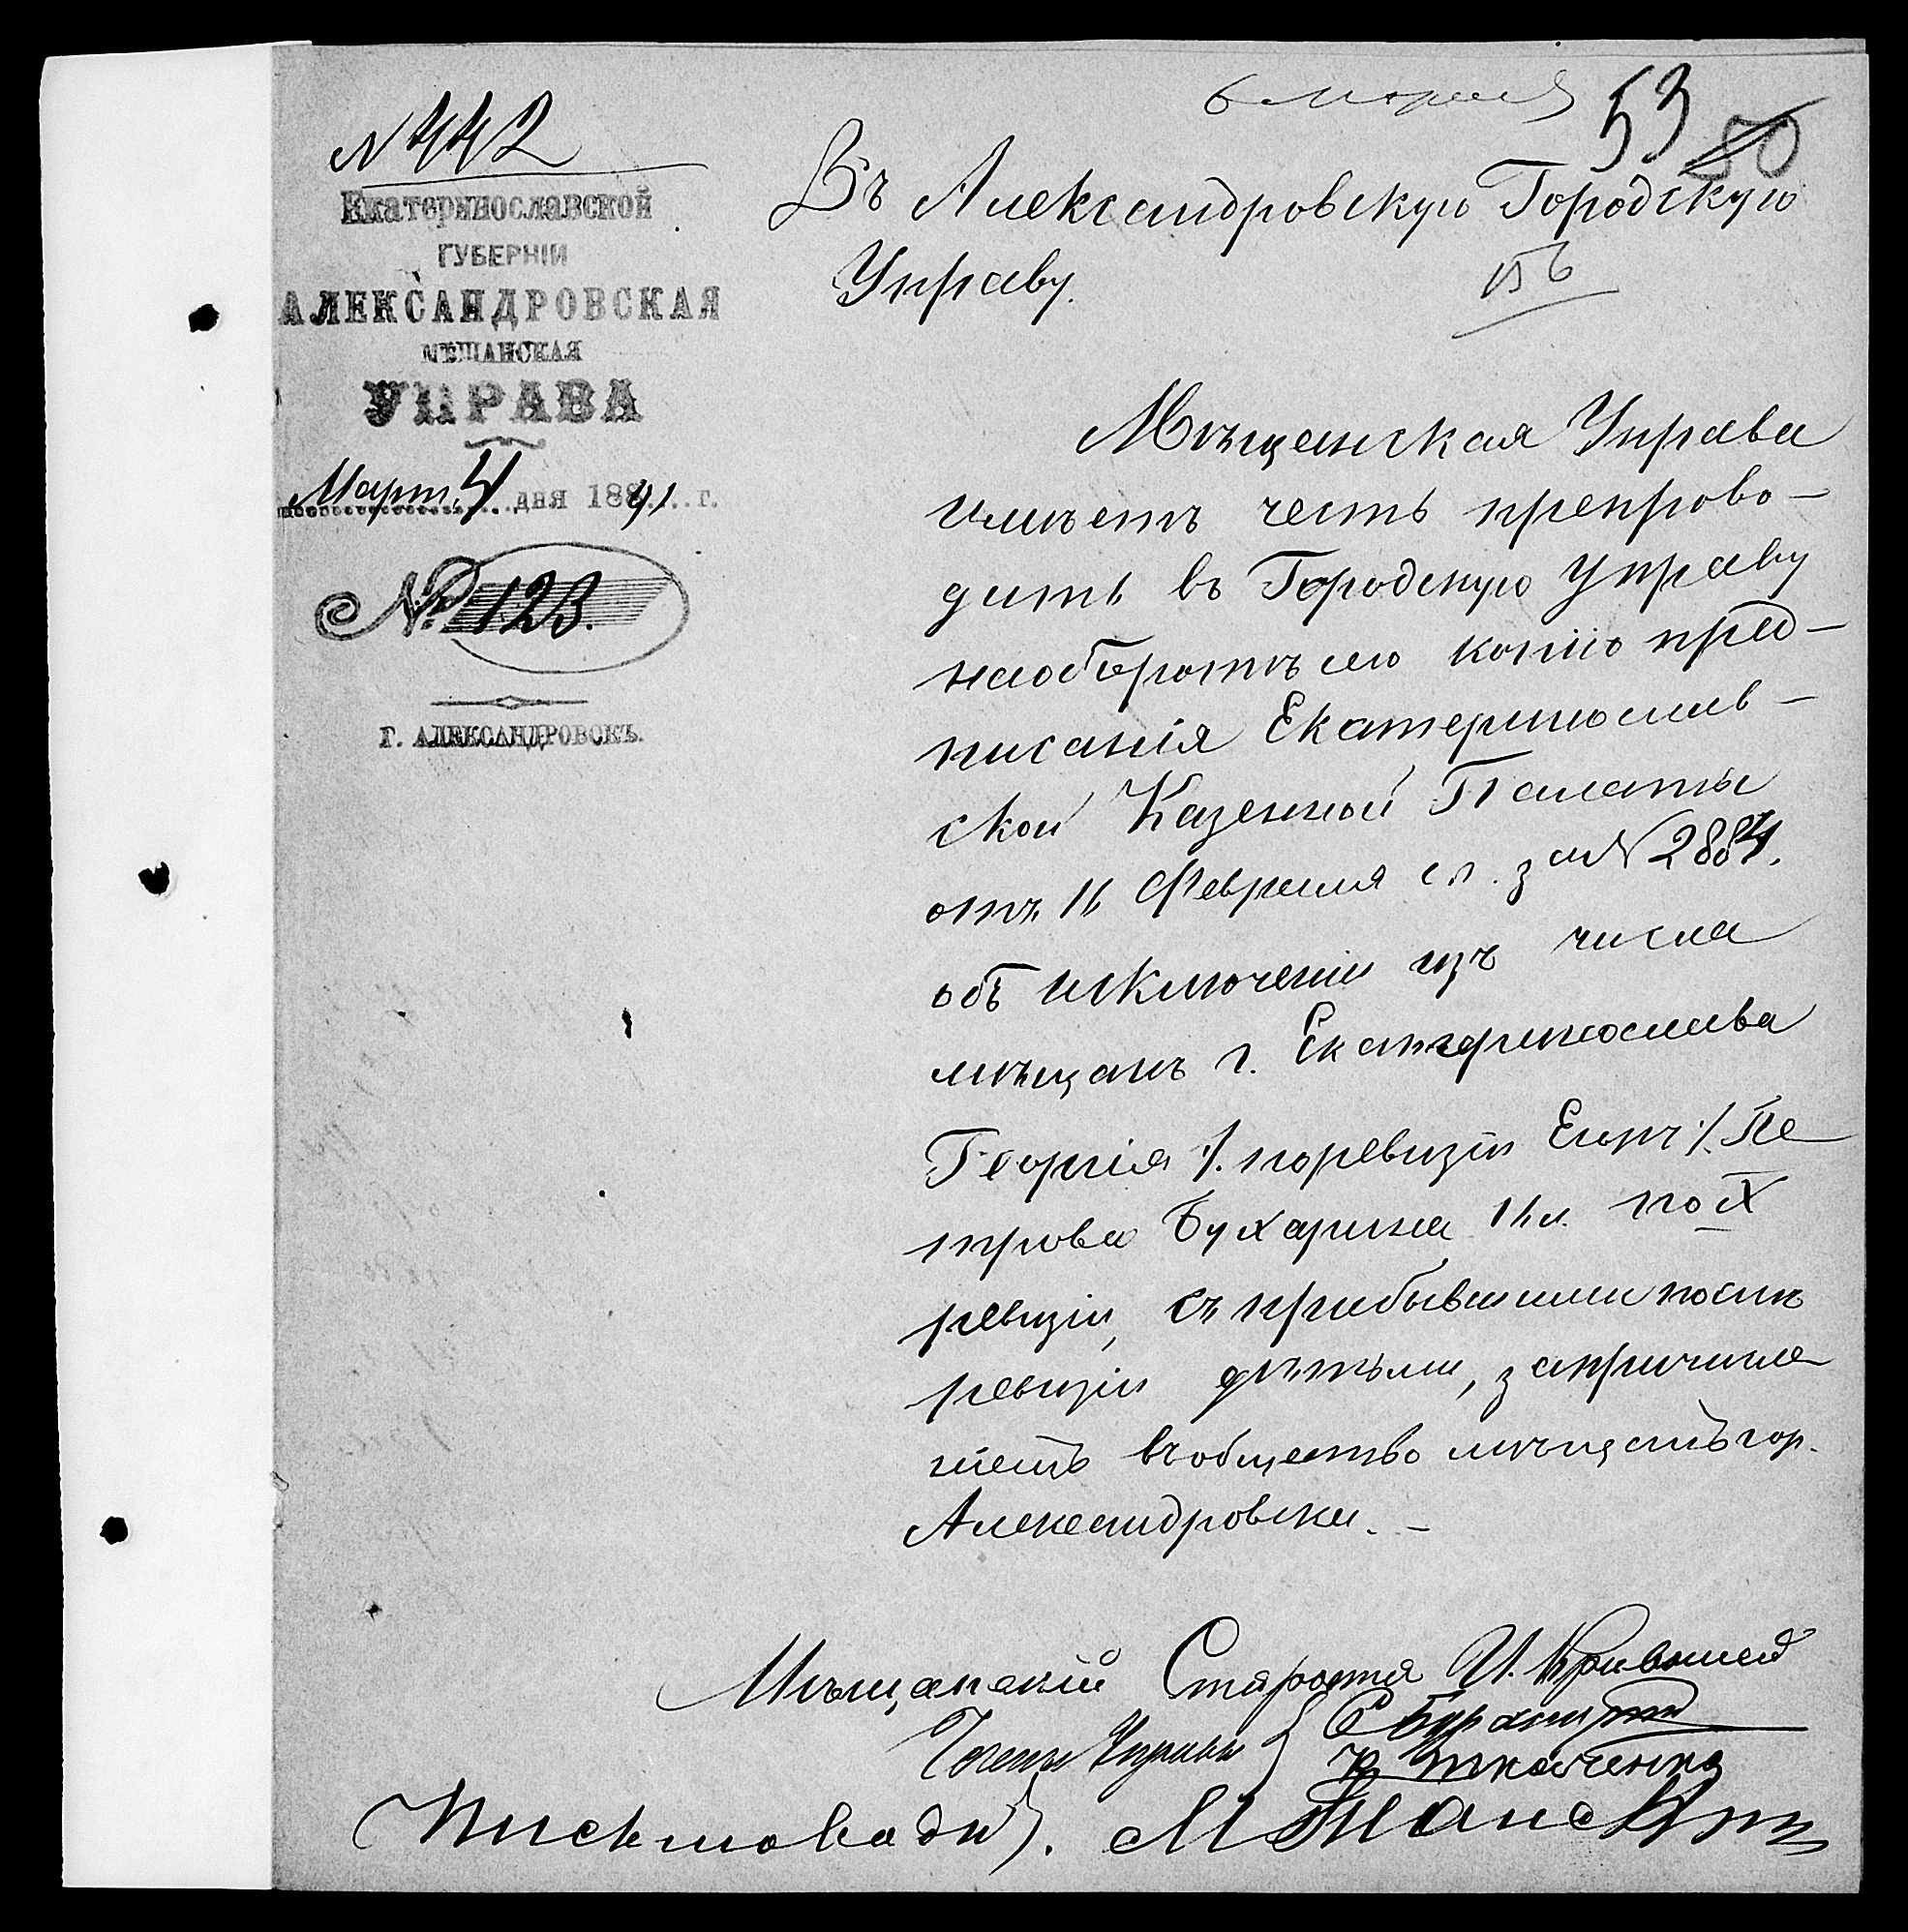 6 марта 53 80
N 442
Екатеринославской
ГУБЕРНІИ
АЛЕКСАНДРОВСКАЯ
МѢЩАНСКАЯ
УПРАВА
Март. 4 дня 1891 г.
№ 123.
Г. АЛЕКСАНДРОВСКЪ.
Въ Александровскую Городскую
Управу.
Мѣщанская Управа
имѣетъ честь препрово-
дить въ Городскую Управу
наоборотѣ сего копію пред-
писанія Екатеринослав-
ской Казенной Палаты
отъ 16 Февраля с.г. за N 2884.
объ исключеніи изъ числа
мѣщанъ г. Екатеринослава
Георгія /. поревизіи Егоръ ./ Пе
трова Бухарина по X
ревизіи, съ прибывшими послѣ
ревизіи дѣтьми, за причисле
ніемъ въ общество мѣщанъ гор.
Александровска. -
Мѣщанскій Староста И.
Члены Управы
Ткаченко
Письмовод.